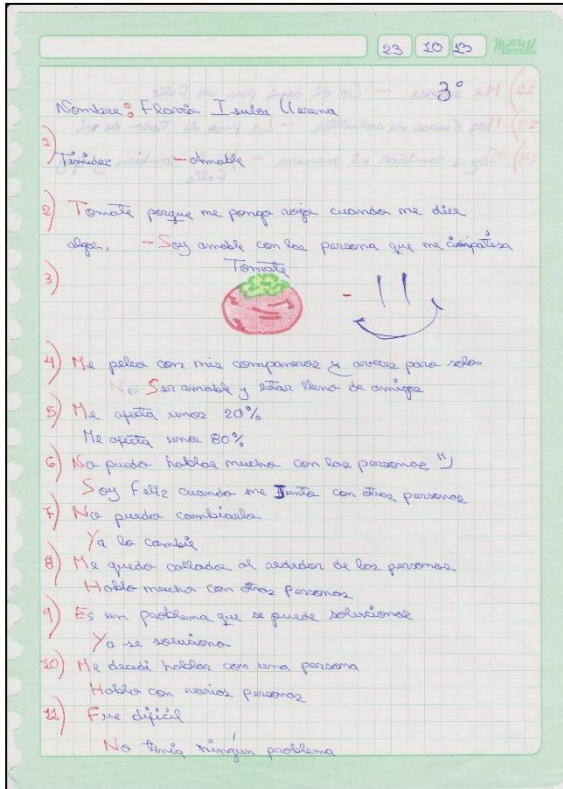 23 10 13
3°
Nombre: Flavia Isuiza Llerena
1)
Timidez - Amable
2) Tomate porque me pongo roja cuando me dice
algo. - Soy amable con las persona que me simpatisa
3) Tomate
4) Me peleo con mis compañeros y aveces paro sola
No Ser amable y estar llena de amigos
5) Me afecta unos 20%
Me afecta uno 80%
6) No puedo hablar mucho con las personas
Soy Feliz cuando me Junto con otras personas
7) No puedo cambiarlo
Ya lo cambie
8) Me quedo callada al rededor de las personas
Hablo mucho con otras personas
9) Es un problema que se puede solucionar
Ya se soluciono
10) Me decidi hablar con una persona
Hablo con varias personas
11) Fue dificil
No tenia ningún problema